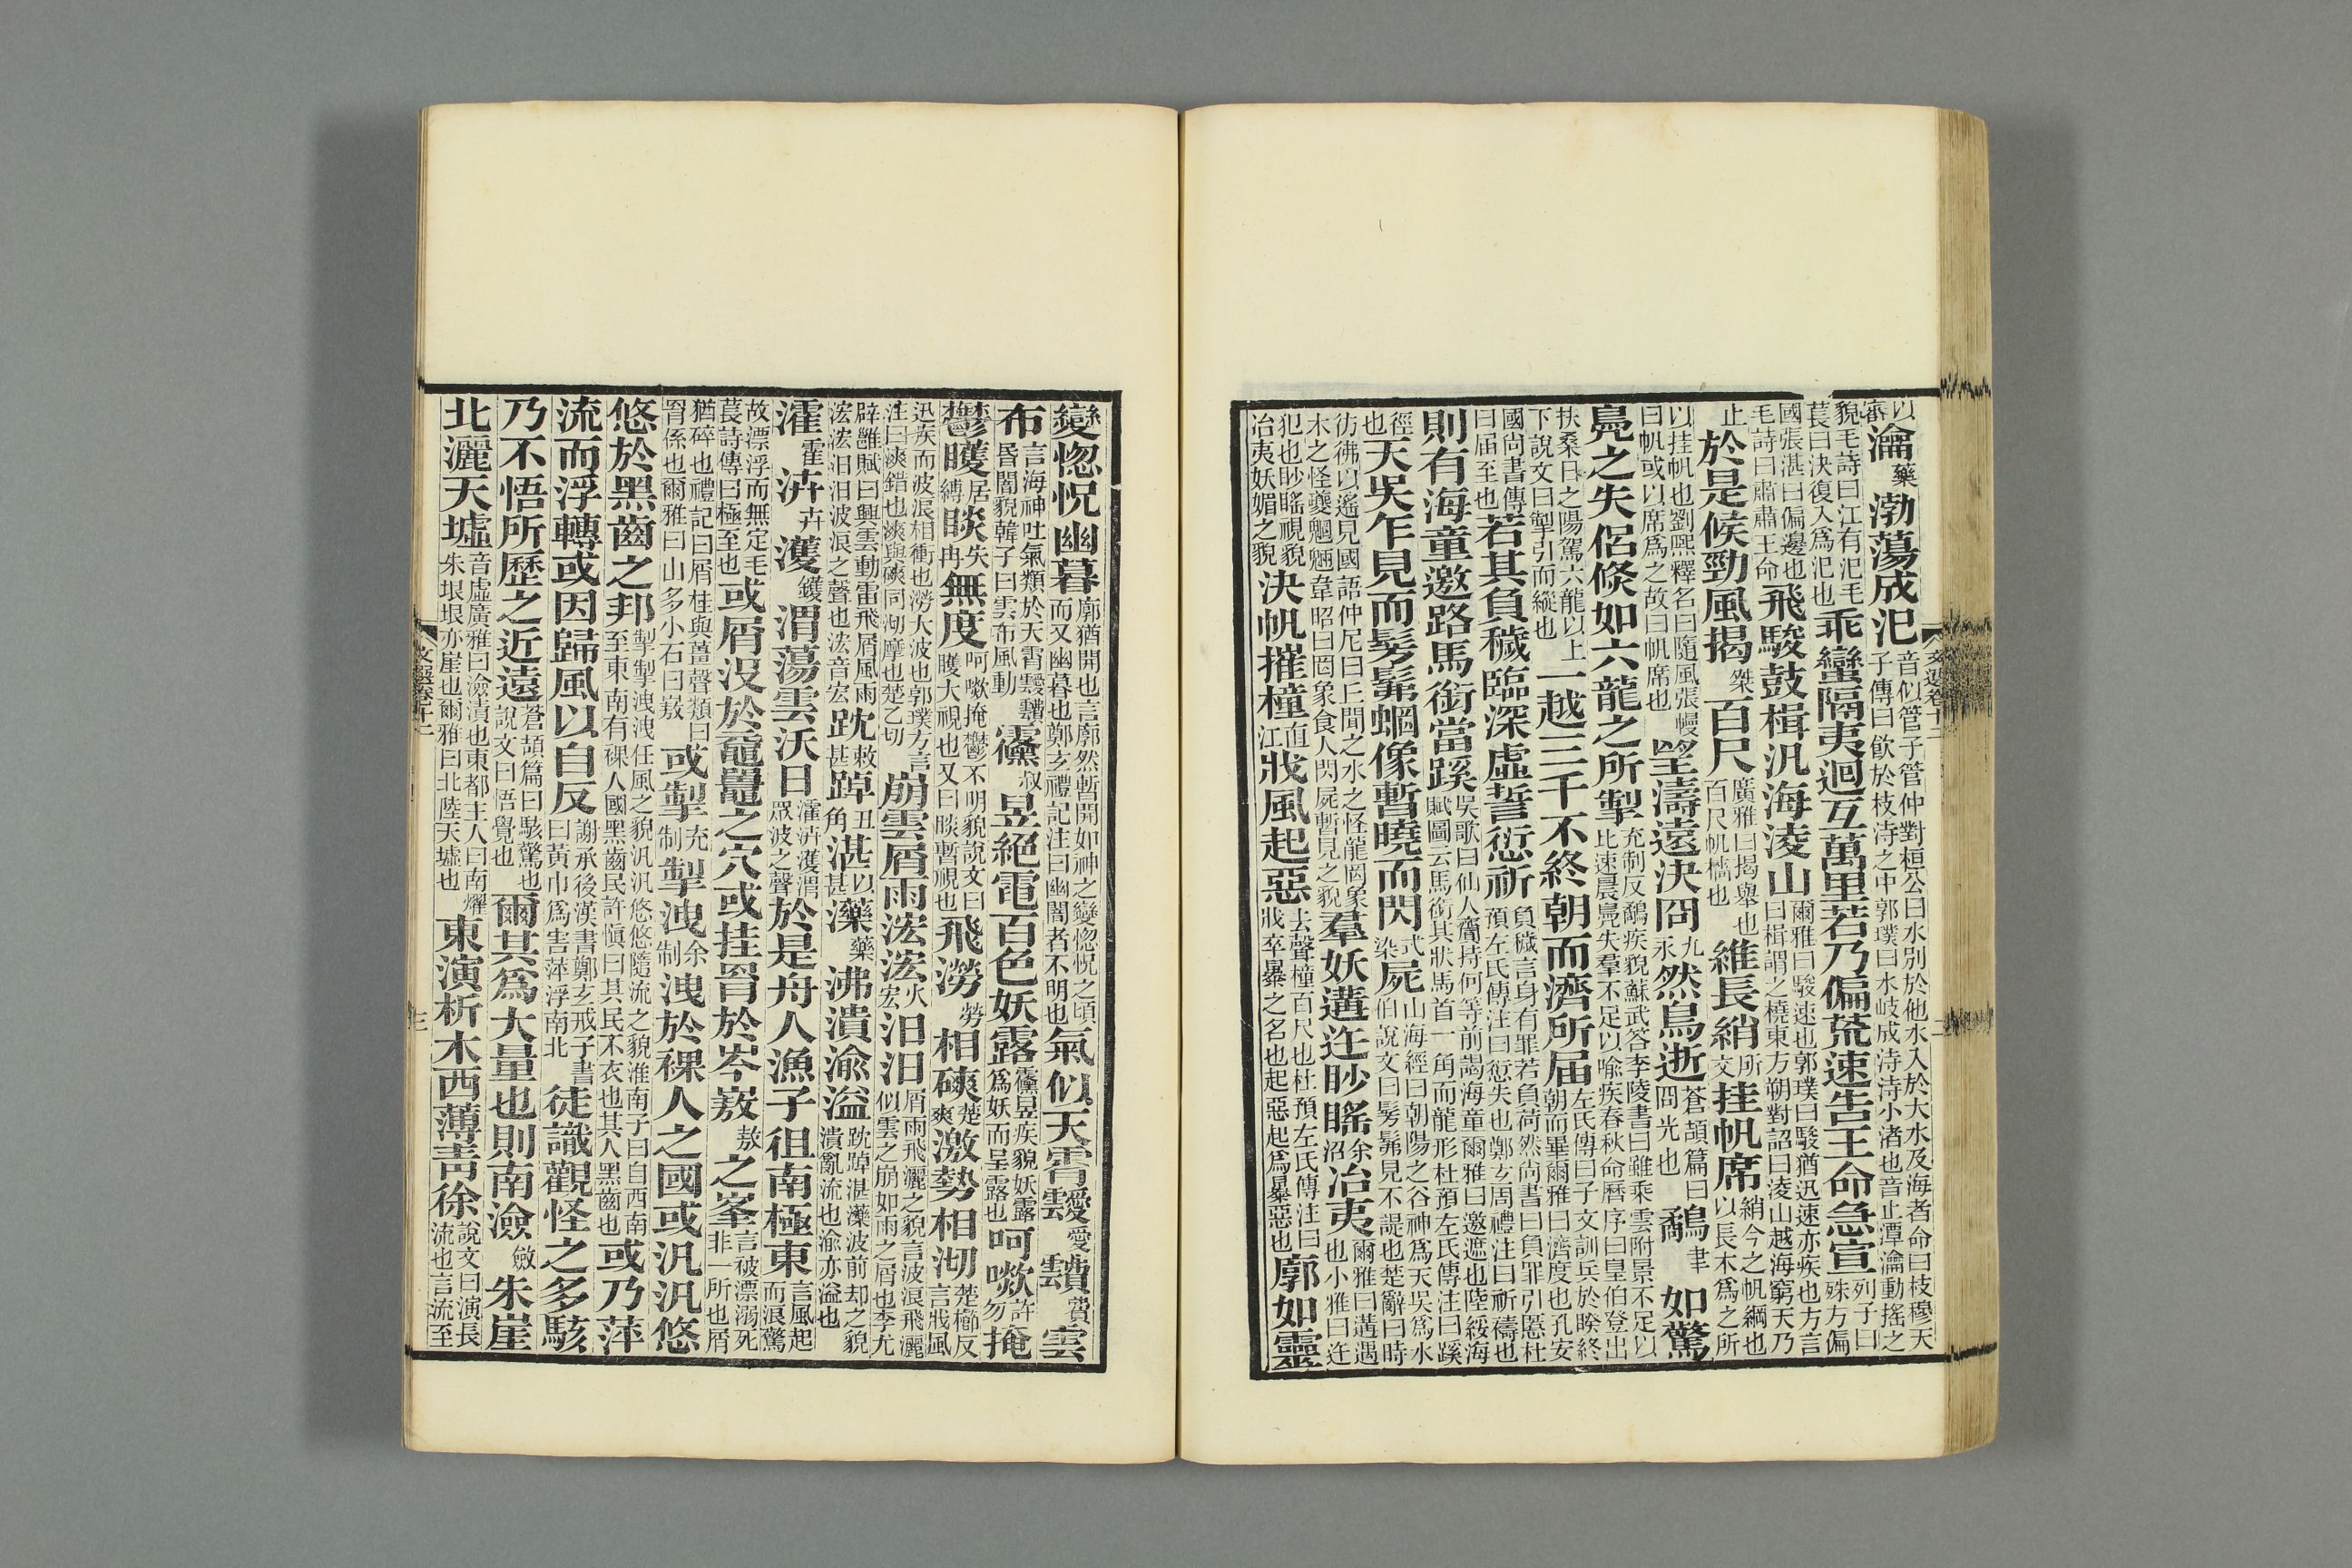 以審瀹藥渤蕩成汜音似管子管仲對桓公曰水別於他水入於大水及海者命曰枝穆天子傳曰飮於枝洔之中郭璞曰水岐成洔洔小渚也音止潭瀹動搖之
貌毛詩曰江有汜毛萇曰決復入爲汜也乖蠻隔夷迴互萬里若乃偏荒速告王命急宣列子曰殊方偏
國張湛曰偏邊也毛詩曰肅肅王命飛駿鼓楫汎海淩山爾雅曰駿速也郭璞曰駿猶迅速亦疾也方言曰楫謂之橈東方朔對詔曰凌山越海窮天乃
止於是候勁風揭桀百尺廣雅曰揭舉也百尺帆檣也維長綃所交挂帆席綃今之帆綱也以長木爲之所
以挂帆也劉熙釋名曰隨風張幔曰帆或以席爲之故曰帆席也望濤遠決冏九永然鳥逝蒼頡篇曰冏光也鷸聿如驚
鳧之失侶倐如六龍之所掣充制反鷸疾貌蘇武答李陵書曰雖乘雲附景不足以比速晨鳧失羣不足以喻疾春秋命歷序曰皇伯登出
扶桑日之陽駕六龍以上下說文曰掣引而縱也一越三千不終朝而濟所届左氏傳曰子文訓兵於睽終朝而畢爾雅曰濟度也孔安
國尚書傳曰届至也若其負穢臨深虛誓愆祈負穢言身有罪若負荷然尚書曰負罪引慝杜預左氏傳注曰愆失也鄭玄周禮注曰祈禱也
則有海童邀路馬銜當蹊吳歌曰仙人齎持何等前謁海童爾雅曰邀遮也陸綏海賦圖云馬銜其狀馬首一角而龍形杜預左氏傳注曰蹊
徑也天吳乍見而髣髴蝄像暫曉而閃式染屍山海經曰朝陽之谷神爲天吳爲水伯說文曰髣髴見不諟也楚辭曰時
彷彿以遙見國語仲尼曰丘聞之水之怪龍罔象木之怪夔魍魎韋昭曰罔象食人閃屍暫見之貌羣妖遘迕眇䁘余沼冶夷爾雅曰遘遇也小雅曰迕
犯也眇䁘視貌冶夷妖媚之貌決帆摧橦直江戕風起惡去聲橦百尺也杜預左氏傳注曰戕卒暴之名也起惡起爲暴惡也廓如靈
文選卷十二
二
變惚怳幽暮廓猶開也言廓然暫開如神之變惚怳之頃而又幽暮也鄭玄禮記注曰幽闇者不明也氣似天霄靉愛靅費雲
布言海神吐氣類於天霄靉靅昏闇貌韓子曰雲布風動䨴叔昱絕電百色妖露䨴昱疾貌妖露爲妖而呈露也呵㰲許勿掩
鬱矆居縛睒失冉無度呵㰲掩鬱不明貌說文曰矆大視也又曰睒暫視也飛澇勞相磢楚爽激勢相沏楚櫛反言戕風
迅疾而波浪相衝也澇大波也郭璞方言注曰漺錯也漺與磢同沏摩也楚乙切崩雲屑雨浤浤火宏汩汩屑雨飛灑之貌言波浪飛灑似雲之崩如雨之屑也李尤
辟雝賦曰興雲動雷飛屑風雨浤浤汩汩波浪之聲也浤音宏䟢敕甚踔丑角湛以甚藻藥沸潰渝溢䟢踔湛藻波前却之貌潰亂流也渝亦溢也
濩霍泋卉濩鑊渭蕩雲沃日濩泋濩渭眾波之聲於是舟人漁子徂南極東言風起而浪驚
故漂浮而無定毛萇詩傳曰極至也或屑没於黿鼉之穴或挂罥於岑㟼敖之峯言破漂溺死非一所也屑
猶碎也禮記曰屑桂與薑聲類曰罥係也爾雅曰山多小石曰㟼或掣充制掣洩余制洩於裸人之國或汎汎悠
悠於黑齒之邦掣掣洩洩任風之貌汎汎悠悠隨流之貌淮南子曰自西南至東南有裸人國黑齒民許愼曰其民不衣也其人黑齒也或乃萍
流而浮轉或因歸風以自反謝承後漢書鄭玄戒子書曰黃巾爲害萍浮南北徒識觀怪之多駭
乃不悟所歷之近遠蒼頡篇曰駭驚也說文曰悟覺也爾其爲大量也則南澰斂朱崖
北灑天墟音虛廣雅曰澰漬也東都主人曰南燿朱垠垠亦崖也爾雅曰北陸天墟也東演析木西薄靑徐說文曰演長流也言流至
文選卷十二
三